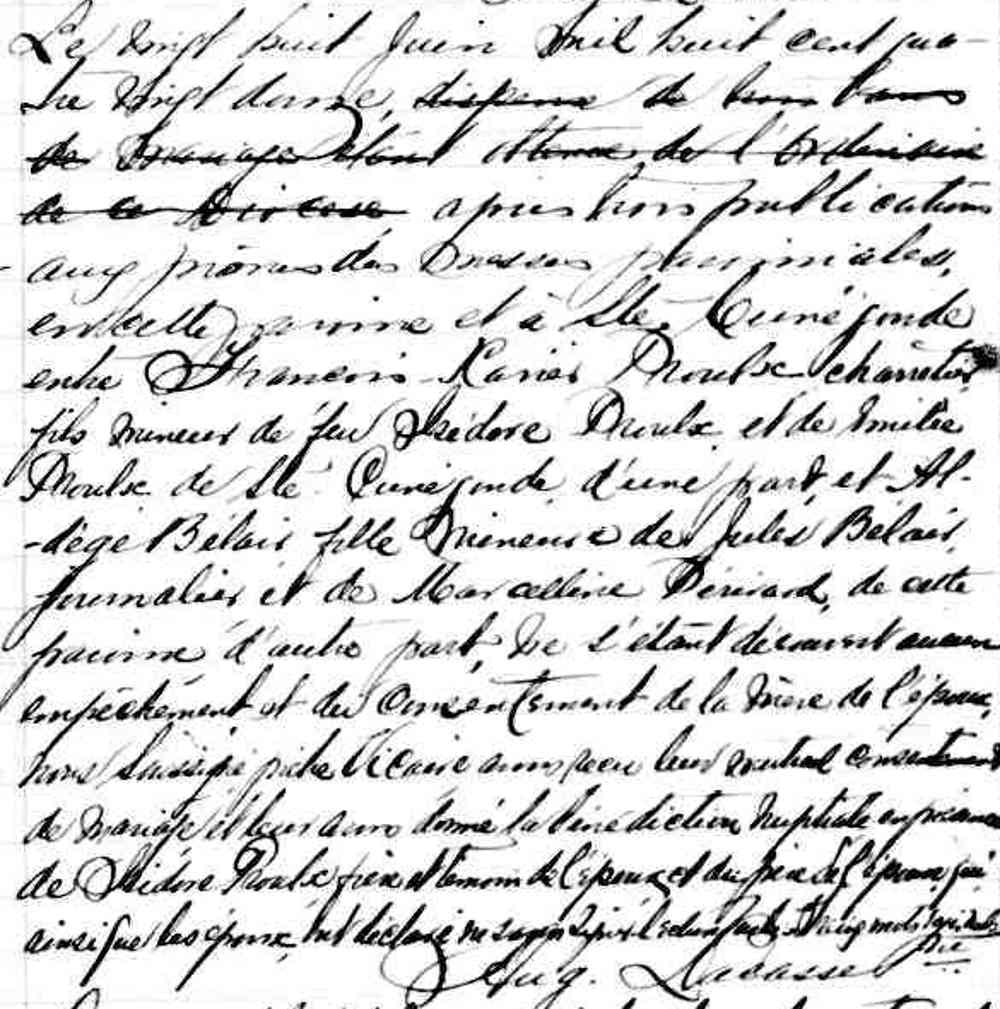 Le vingt huit Juin mil huit cent qua-
tre vingt douze, dispense de trois bans
de mariage étant obtenue de l'Ordinaire
de ce Diocèse après trois publications
aux prônes des messes paroissiales,
en cette paroisse et à Ste. Cunégonde
entre François-Xavier Proulx charretier,
fils mineur de feu Isidore Proulx et de Emilie
Proulx de Ste Cunégonde d'une part, et Al-
-dège Bélair fille mineure de Jules Bélair,
journalier et de Marcelline Bérard, de cette
paroisse d'autre part, ne s'étant découvert aucun
empêchement et du consentement de la mère de l'époux,
nous soussigné prêtre vicaire avons reçu leur mutuel consentement
de mariage et leur avons donné la bénédiction nuptiale en présence
de Isidore Proulx frère et témoin de l'époux et du père de l'épouse, qui
ainsi que les époux, ont déclaré ne savoir signer lecture faite.
Aug. Lacasse Ptre